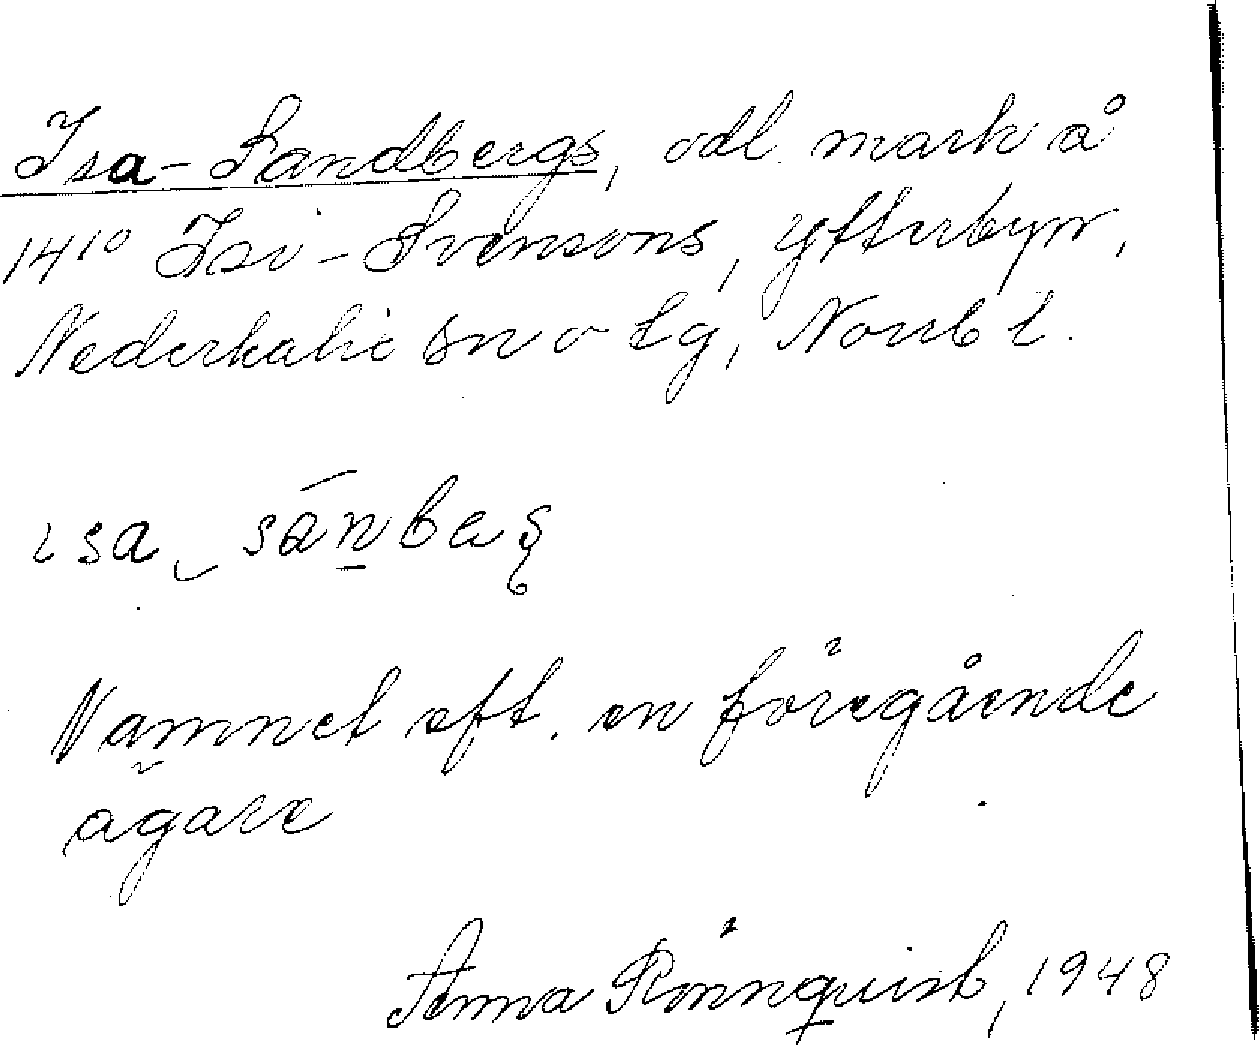 Isa-Sandbergs, odl. mark å
14¹⁰ Isi-Svensons, Ytterbyn,
Nederkalix sn o tg, Norrb l.
ɩsa ‿ sánbeş
Namnet eft. en föregående
ägare
Anna Rönnquist, 1948